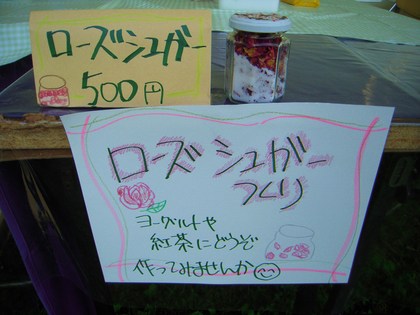 ローズシュガー
500円
ローズシュガー
つくり
ヨーグルトや
紅茶にどうぞ
作ってみませんか